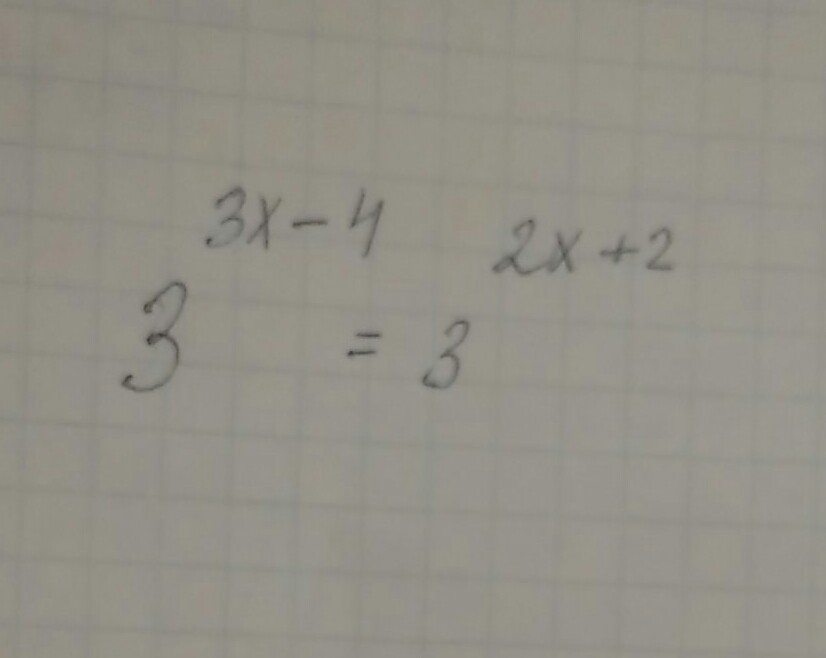 3^{3x-4} = 3^{2x+2}